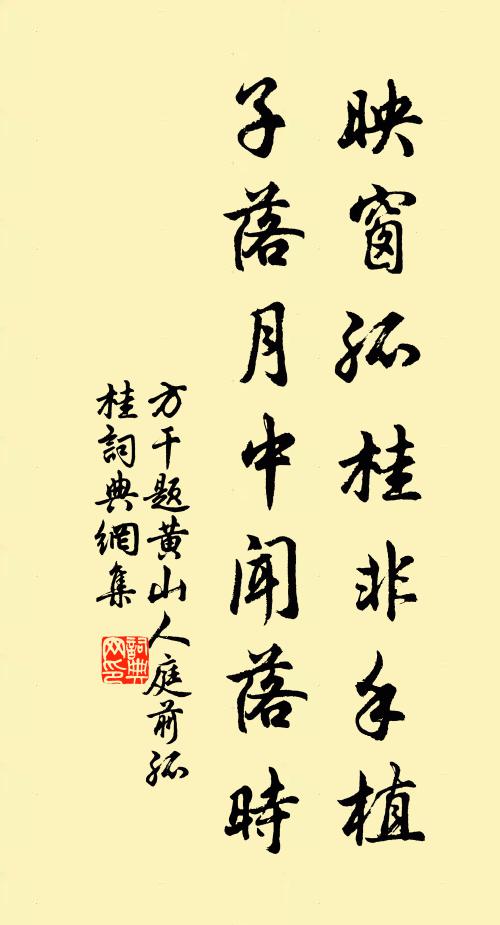 映窗孤桂非手植
子落月中聞落時
方干題黄山人庭前孤
桂詞典網集
詞典
网印